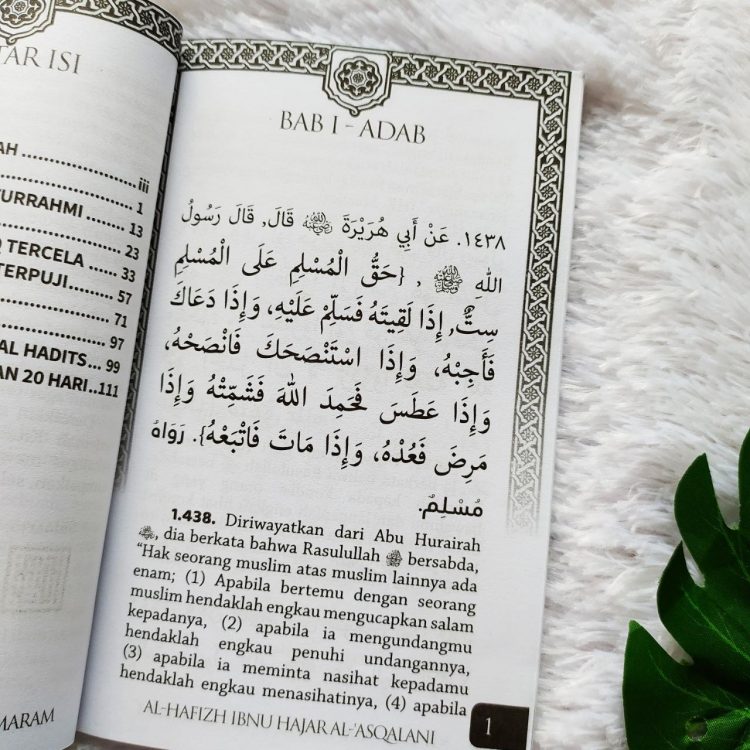 TAR ISI
AH .................... iii
.................... 1
TURRAHMI ....... 13
.................... 23
Q TERCELA ..... 33
TERPUJI........... 57
.................... 71
.................... 97
AL HADITS... 99
AN 20 HARI..111
MARAM
BAB I - ADAB
١٤٣٨. عَنْ أَبِي هُرَيْرَةَ ﷺ قَالَ, قَالَ رَسُولُ
اللهِ ﷺ , {حَقُّ الْمُسْلِمِ عَلَى الْمُسْلِمِ
سِتٌّ, إِذَا لَقِيتَهُ فَسَلِّمْ عَلَيْهِ، وَإِذَا دَعَاكَ
فَأَجِبْهُ، وَإِذَا اسْتَنْصَحَكَ فَانْصَحْهُ،
وَإِذَا عَطَسَ فَحَمِدَ اللهَ فَشَمِّتْهُ وَإِذَا
مَرِضَ فَعُدْهُ، وَإِذَا مَاتَ فَاتْبَعْهُ}. رَوَاهُ
مُسْلِمٌ.
1.438. Diriwayatkan dari Abu Hurairah
ﷺ, dia berkata bahwa Rasulullah ﷺ bersabda,
“Hak seorang muslim atas muslim lainnya ada
enam; (1) Apabila bertemu dengan seorang
muslim hendaklah engkau mengucapkan salam
kepadanya, (2) apabila ia mengundangmu
hendaklah engkau penuhi undangannya,
(3) apabila ia meminta nasihat kepadamu
hendaklah engkau menasihatinya, (4) apabila
AL-HAFIZH IBNU HAJAR AL-'ASQALANI
1